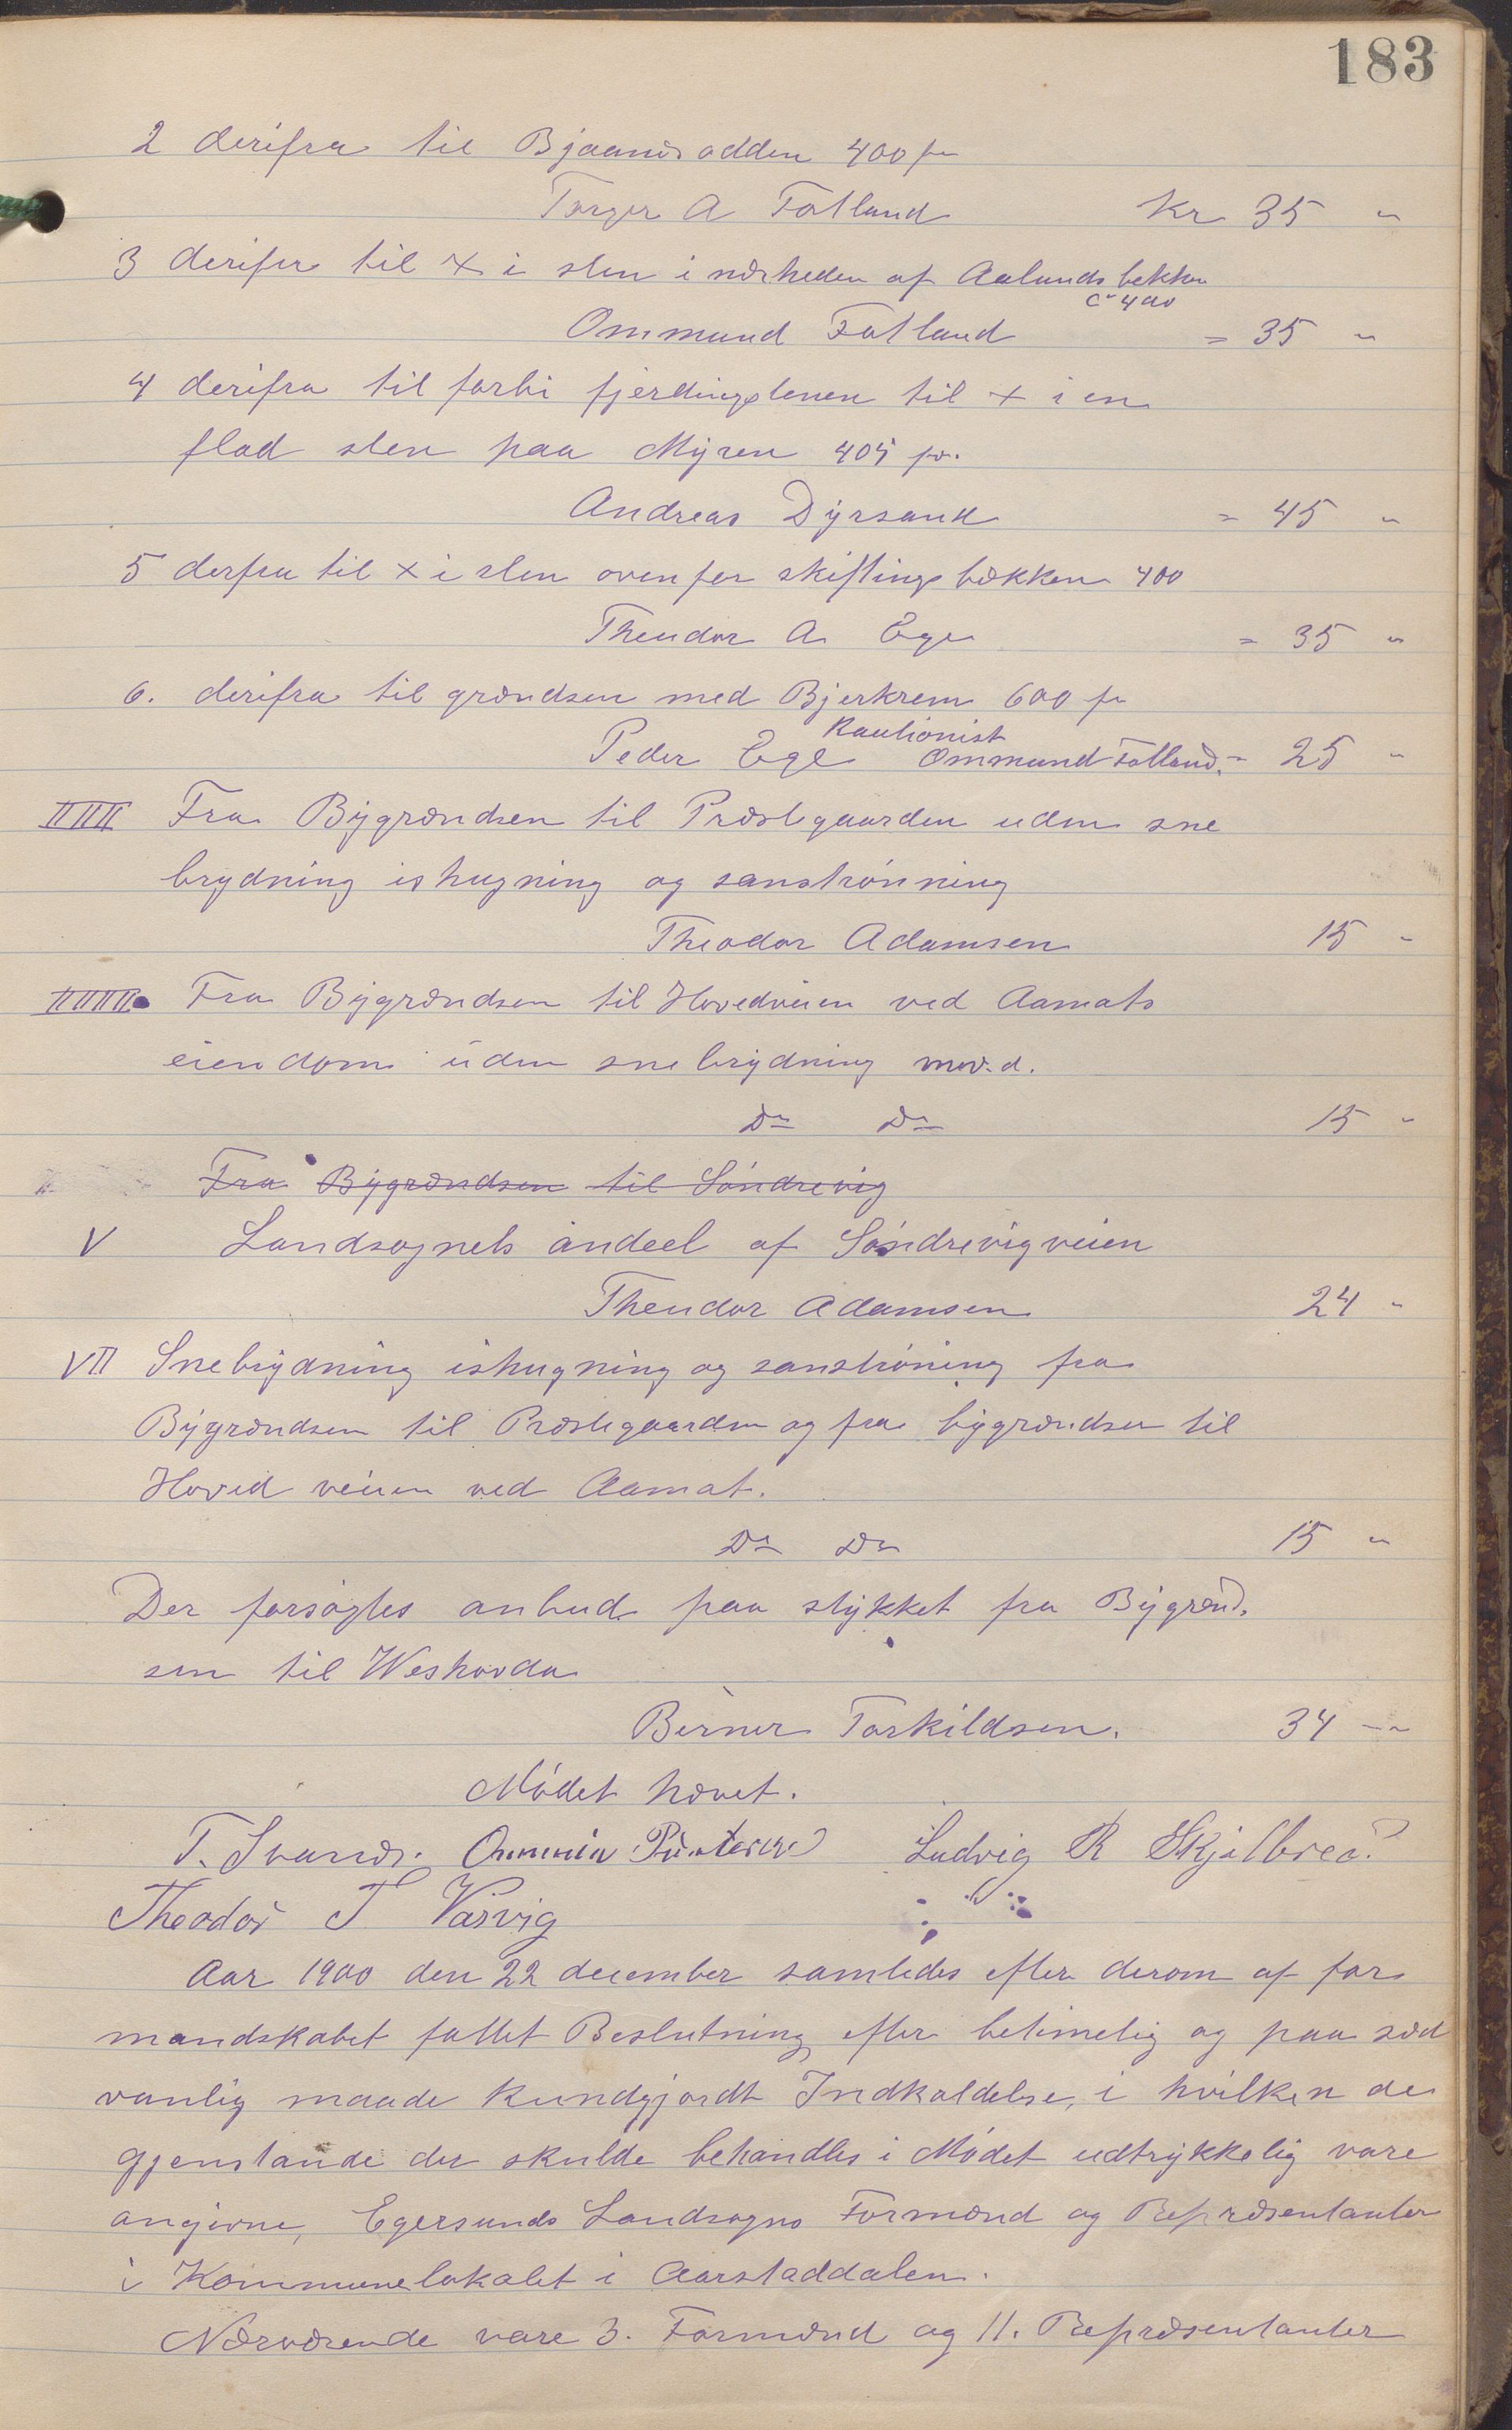 183
2 derifra til Bjaandsodden 400 fv
Torger A Fotland Kr 35 "
3 derifra til + i sten i nærheden af Aalandsbekken
Ca 400
Ommund Fotland = 35 "
4 derifra til forbi fjerdingstenen til + i en
flad sten paa Myren 405 fv.
Andreas Dyrsand = 45 "
5 derfra til + i sten ovenfor skiftingsbækken 400
Theodor A. Ege = 35 "
6. derifra til grændsen med Bjerkrem 600 fv
Kautionist
Peder Ege Ommund Fotland. = 25 "
IIII Fra Bygrændsen til Præstegaarden uden sne
brydning ishugning og sanstrøning
Theodor Adamsen 15 "
IIIII Fra Bygrændsen til Hovedveien ved Aamots
eiendom uden snebrydning m.v.d.
Do Do 15 "
Fra Bygrændsen til Søndrevig
V Landsognets andeel af Søndrevigveien
Theodor Adamsen 24 "
VII Snebrydning ishugning og sanstrøning fra
Bygrændsen til Præstegaarden og fra bygrændsen til
Hoved veien ved Aamot.
Do Do 15 "
Der forsøgtes anbud paa stykket fra Bygrænd-
sen til Weshovda
Berner Torkildsen. 34 "
Mødet hævet.
T. Svanes. Ommun Ludvig R Skjelbred.
Theodor T Varvig
Aar 1900 den 22 december samledes efter derom af for
mandskabet fattet Beslutning efter betimelig og paa sæd
vanlig maade kundgjordt Indkaldelse, i hvilken de
gjenstande der skulde behandles i Mødet udtrykkelig vare
angivne, Egersunds Landsogns Formænd og Repræsentanter
i Kommunelokalet i Aarstaddalen.
Nærværende vare 3. Formænd og 11. Repræsentanter